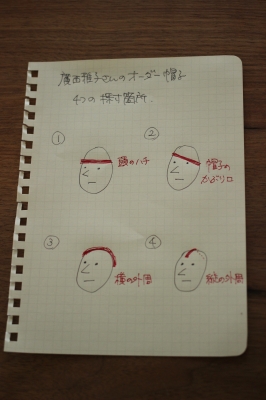 廣田雅子さんのオーダー帽子
4つの採寸箇所
①
頭のハチ
②
帽子の
かぶり口
③
横の外周
④
縦の外周